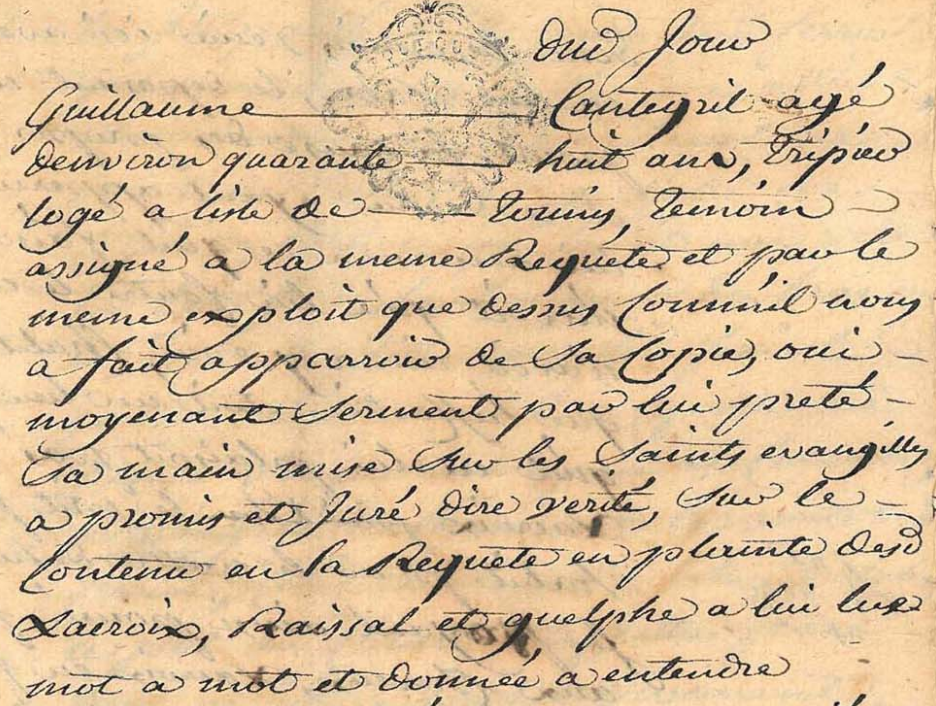 dud Jour
Guillaume Canteyril agé
denviron quarante huit ans, Tripier
logé a lisle de Tounis, Temoin
assigné a la meme Requete et par le
meme exploit que dessus Comme il nous
a fait apparroir de sa Copie, oui
moyenant serment par lui preté
sa main mise sur les saints evangilles
a promis et Juré dire verité, sur le
Contenu en la Requete en plainte desd
Lacroix, Raissal et quelphe a lui lue
mot a mot et donnée a entendre